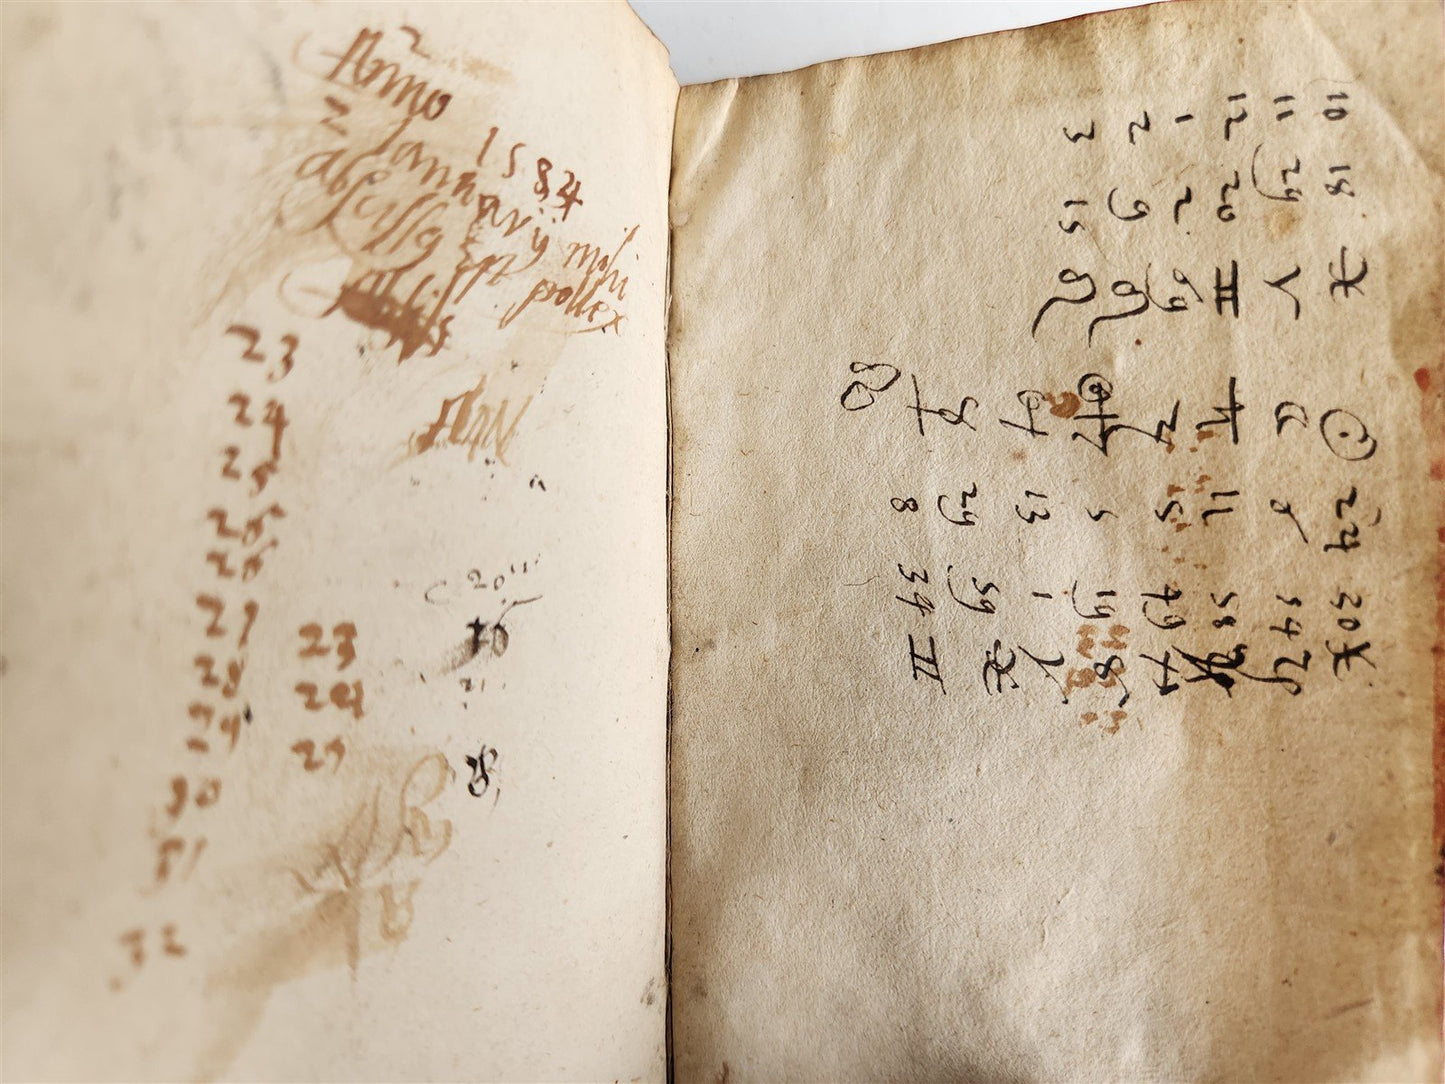 Anno 1584
2 Januarij mihi
abscissus est pollex
23
24
25
26
26
27
28
29
30
31
32
23
24
25
20
10
10 18 ♓
11 29 ♈
12 20 ♊
1 2 ♋
2 6 ♌
3 15 ♌
☉ 24 20 ♓
☽ 9 54 ♑
♄ 11 58
♃ 5 49
♂ 5 19 ♉
♀ 13 1 ♈
☿ 29 59 ♓
☊ 8 34 ♊